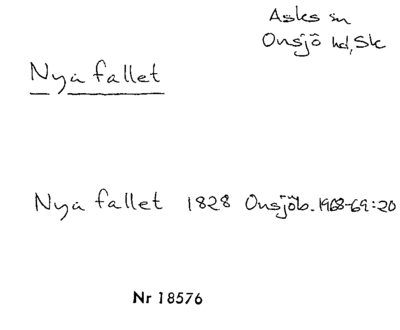 Asks sn
Onsjö hd, Sk
Nya fallet
Nya fallet 1828 Onsjöb. 1968-69:20
Nr 18576